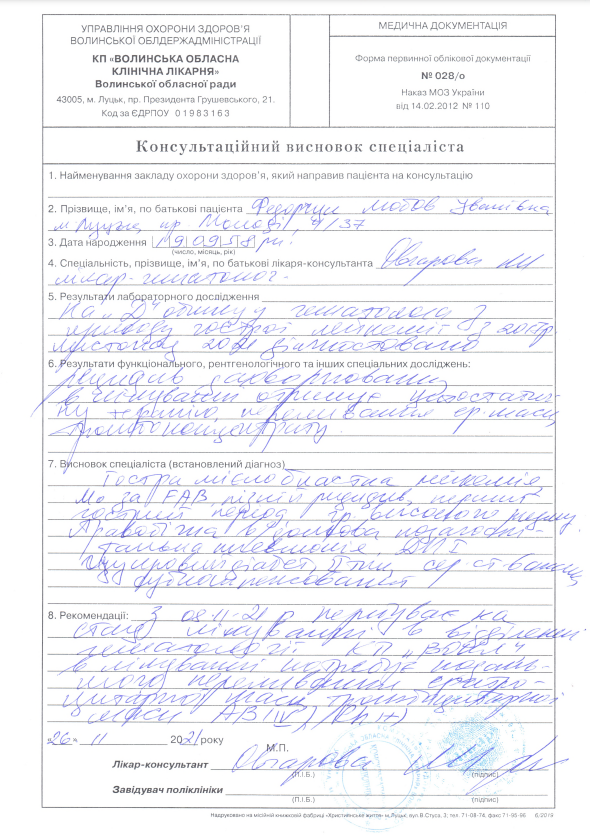 УПРАВЛІННЯ ОХОРОНИ ЗДОРОВ'Я
ВОЛИНСЬКОЇ ОБЛДЕРЖАДМІНІСТРАЦІЇ
КП «ВОЛИНСЬКА ОБЛАСНА
КЛІНІЧНА ЛІКАРНЯ»
Волинської обласної ради
43005, м. Луцьк, пр. Президента Грушевського, 21.
Код за ЄДРПОУ 01983163
МЕДИЧНА ДОКУМЕНТАЦІЯ
Форма первинної облікової документації
№ 028/о
Наказ МОЗ України
від 14.02.2012 № 110
Консультаційний висновок спеціаліста
1. Найменування закладу охорони здоров'я, який направив пацієнта на консультацію
2. Прізвище, ім'я, по батькові пацієнта Федорчук Любов Іванівна
м Луцьк, пр Молоді, 4/37
3. Дата народження 19 09 58 рн.
(число, місяць, рік)
4. Спеціальність, прізвище, ім'я, по батькові лікаря-консультанта
лікар-гематолог
5. Результати лабораторного дослідження
На "Д" обліку у гематолога з
приводу гострої лейкемії з 2017р.
листопад 2021 діагностовано
6. Результати функціонального, рентгенологічного та інших спеціальних досліджень:
рецидив захворювання
в лікуванні отримує цитостатич-
ну терапію, переливання ер. маси,
тромбоконцентрату.
7. Висновок спеціаліста (встановлений діагноз)
Гостра мієлобластна лейкемія,
М0 за FAB, пізній рецидив, перший
гострий період, гр. високого ризику.
Правобічна пневмонія, ДН I
Цукровий діабет, II тип, сер. ст. важк.,
субкомпенсований
8. Рекомендації: З 08.11.21 р перебуває на
стац лікуванні в відділенні
гематології КП "ВОКЛ"
в лікуванні потребує
переливання еритро-
цитарної маси, тромбоцитарної
маси АВ (IV) Rh (+)
«26» 11 2021 року
М.П.
Лікар-консультант
(П.І.Б.) (підпис)
Завідувач поліклініки
(П.І.Б.) (підпис)
Надруковано на масійній книжковій фабриці «Християнське життя» м.Луцьк, вул.В.Стуса, 3; тел. 71-08-74, факс 71-95-96 6/2019